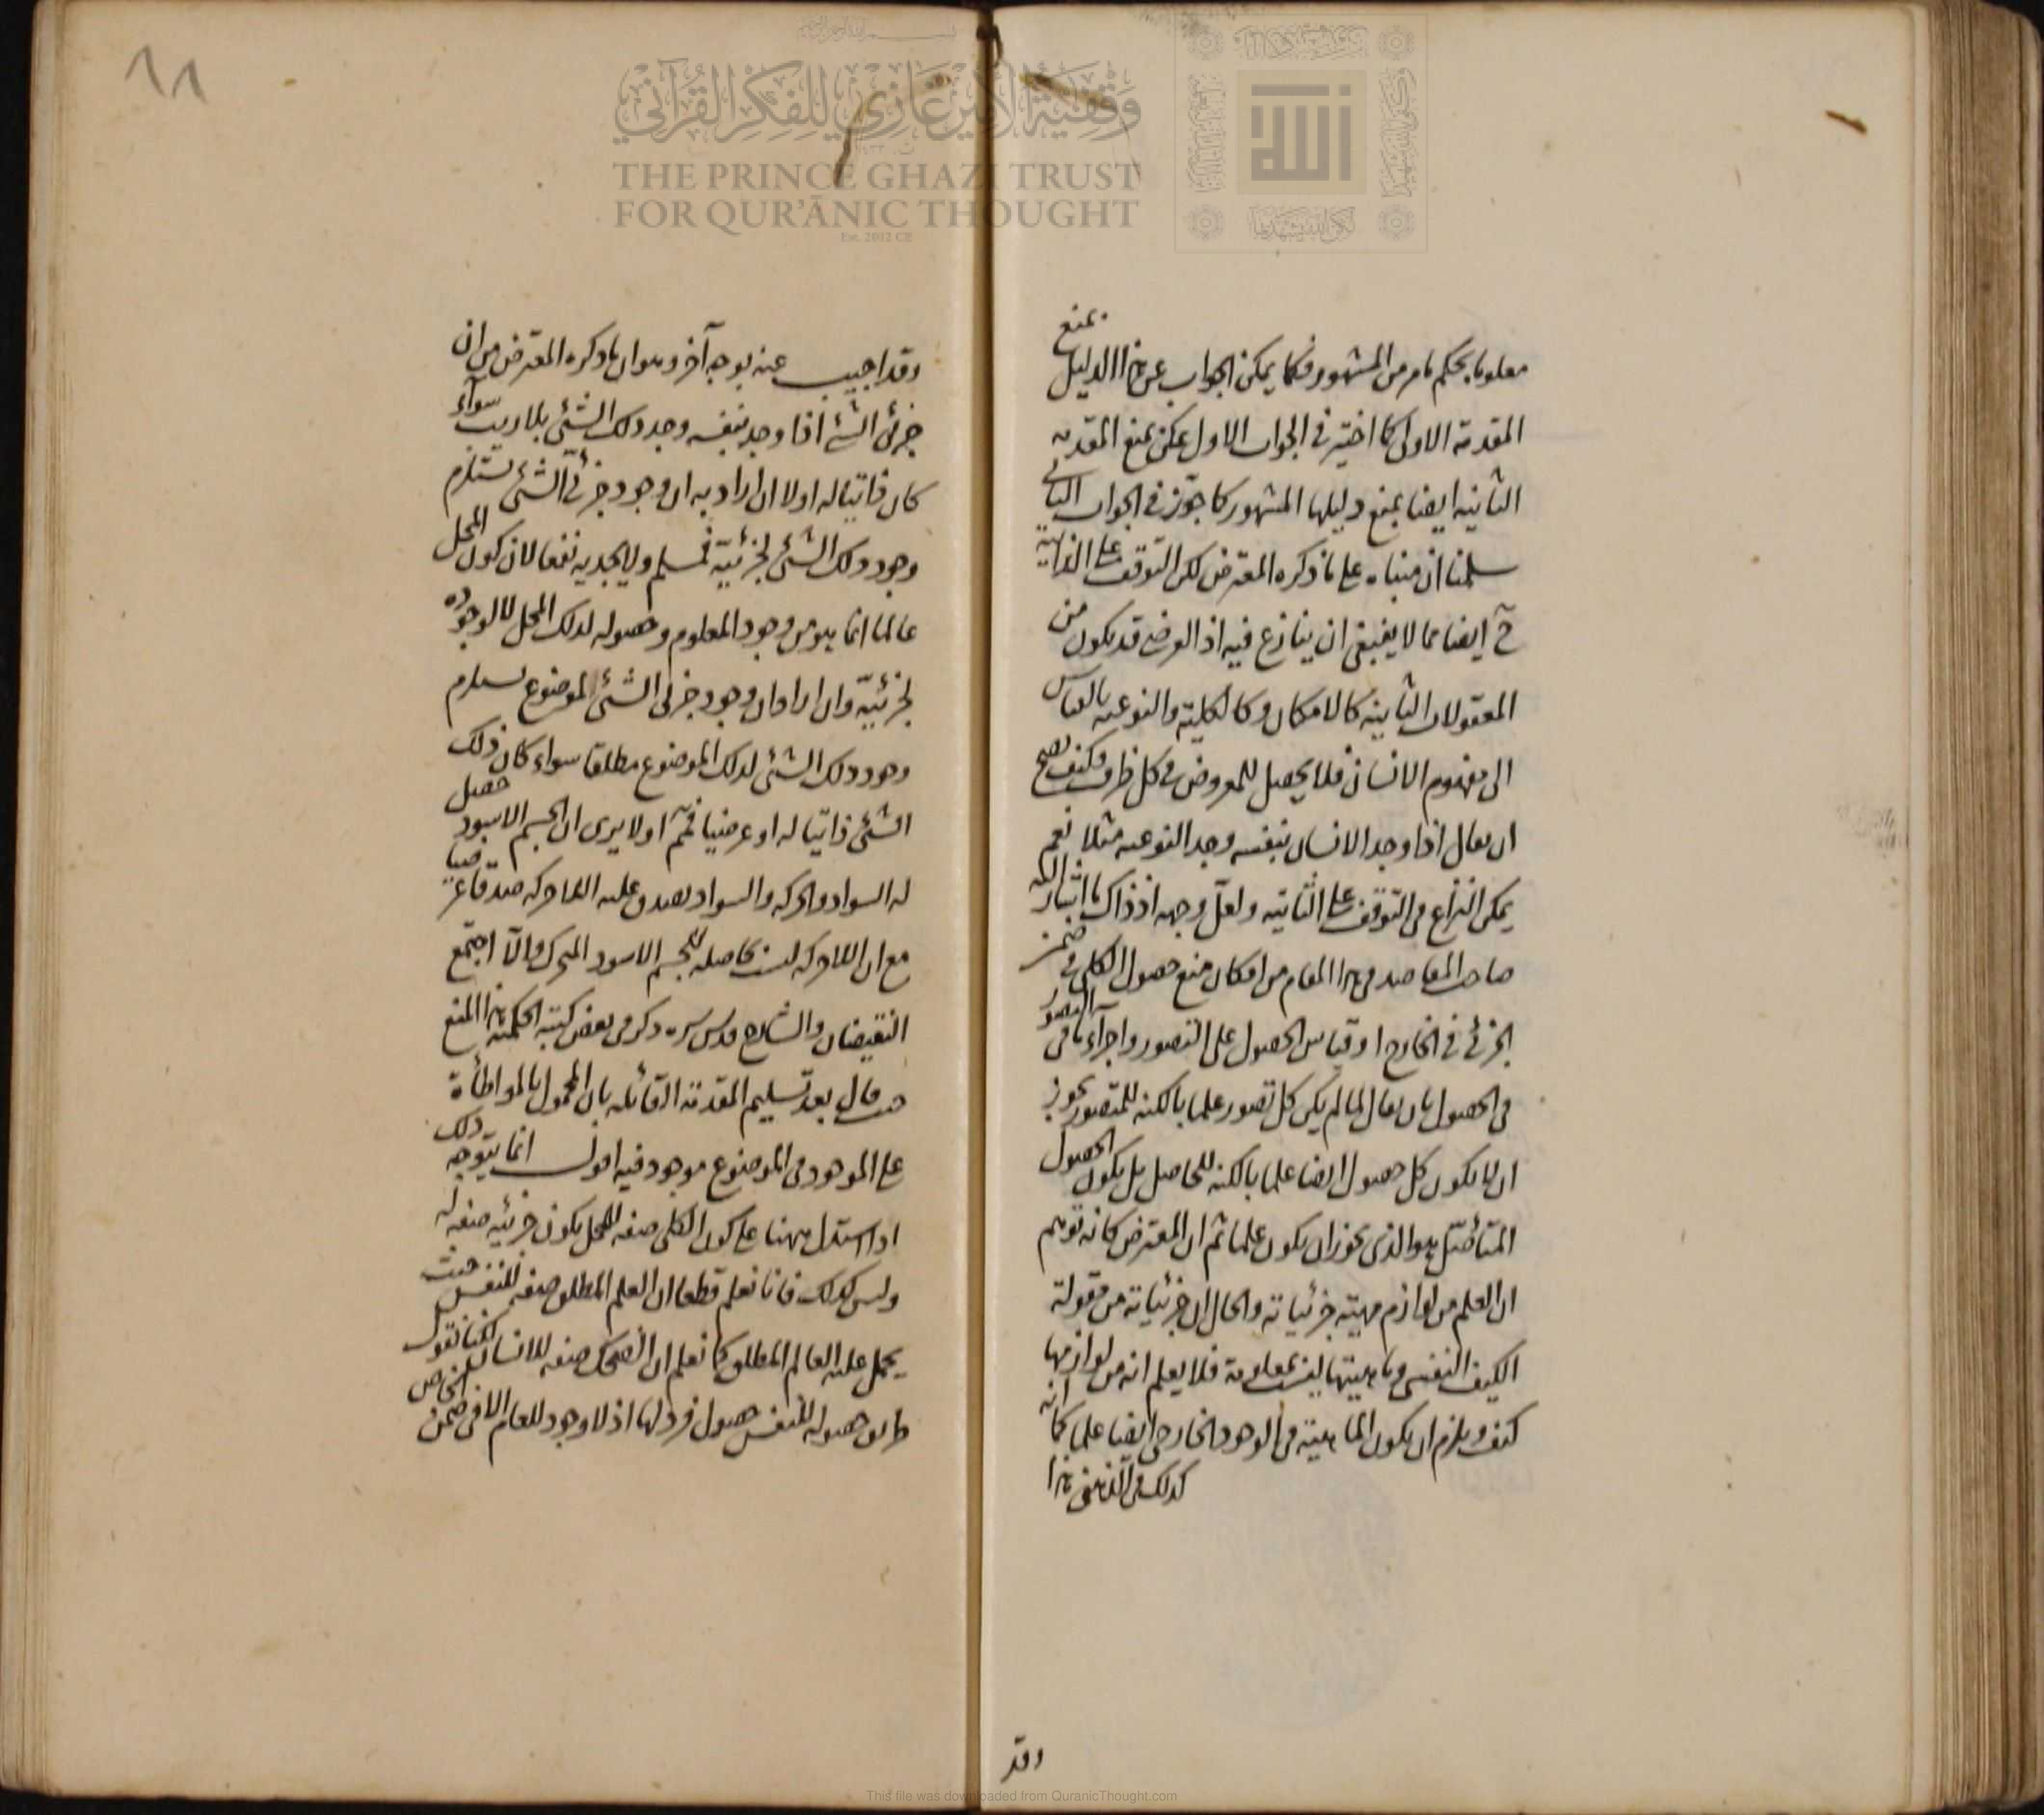 معلوما بحكم ما مر من المشهور فكما يمكن الجواب عن هذا الدليل بمنع
المقدمة الاولى كما اختير في الجواب الاول يمكن بمنع المقدمه
الثانيه ايضا بمنع دليلها المشهور كما جوّز في الجواب الثاني
سلمنا ان مبناه على ما ذكره المعترض لكن التوقف على الذاتية
ح ايضا مما لا ينبغي ان ينازع فيه اذ العرضي قد يكون من
المعقولات الثانية كالامكان وكالكلية والنوعيه بالقياس
الى مفهوم الانسان فلا يحصل للمعروض في كل ظرف فكيف يصح
ان يقال اذا وجد الانسان بنفسه وجد النوعيه مثلا نعم
يمكن النزاع في التوقف على الثانيه ولعل وجهه اذ ذاك ما اشار اليه
صاحب المقاصد في هذا المقام من امكان منع حصول الكلي في ضمن
الجزئي في الخارج او قياس الحصول على التصور واجراء ما في التصور
في الحصول بان يقال لما لم يكن كل تصور علما بالكنه للمتصور يجوز
ان لا يكون كل حصول ايضا علما بالكنه للحاصل بل يكون الحصول
المتأصل هو الذي يجوز ان يكون علما ثم ان المعترض كانه توهم
ان العلم من لوازم مهية جزئياته والحال ان جزئياته من مقولة
الكيف النفسي وماهيتها ليست بمعلومة فلا يعلم انه من لوازمها
كيف ويلزم ان يكون الماهية في الوجود الخارجي ايضا علما كما انه
كذلك في الذهني هذا
وقد
١١
وقد اجيب عنه بوجه آخر وهو ان ما ذكره المعترض من ان
جزئي الشئ اذا وجد بنفسه وجد ذلك الشئ بلا ريب سواء
كان ذاتيا له اولا ان اراد به ان وجود جزئي الشئ يستلزم
وجود ذلك الشئ لجزئيه فمسلم ولا يجديه نفعا لان كون المحل
عالما انما هو من وجود المعلوم وحصوله لذلك المحل لا لوجوده
لجزئيه وان اراد ان وجود جزئي الشئ الموضوع يستلزم
وجود ذلك الشئ لذلك الموضوع مطلقا سواء كان ذلك
الشئ ذاتيا له او عرضيا فمم اولا يرى ان الجسم الاسود حصل
له السواد والحركه والسواد يصدق عليه اللاحركه صدقا عرضيا
مع ان اللاحركه ليست بحاصله للجسم الاسود المتحرك والا اجتمع
النقيضان والشارح قدس سره ذكر في بعض كتبه الحكمية هذا المنع
حيث قال بعد تسليم المقدمة القائله بان المحمول بالمواطأة
على الموجود في الموضوع موجود فيه اقول انما يتوجه ذلك
اذا استدل ههنا على كون الكلي صفه للمحل بكون جزئيه صفه له
وليس كذلك فانا نعلم قطعا ان العلم المطلق صفه للنفس حيث
يحمل عليه العالم المطلق كما نعلم ان الضحك صفه للانسان لكنا نقول
طريق حصوله للنفس حصول فرد لها اذ لا وجود للعام الا في ضمن الخاص
وقفية الأمير غازي للفكر القرآني
THE PRINCE GHAZI TRUST
FOR QUR'ĀNIC THOUGHT
Est. 2012 CE
الله
This file was downloaded from QuranicThought.com